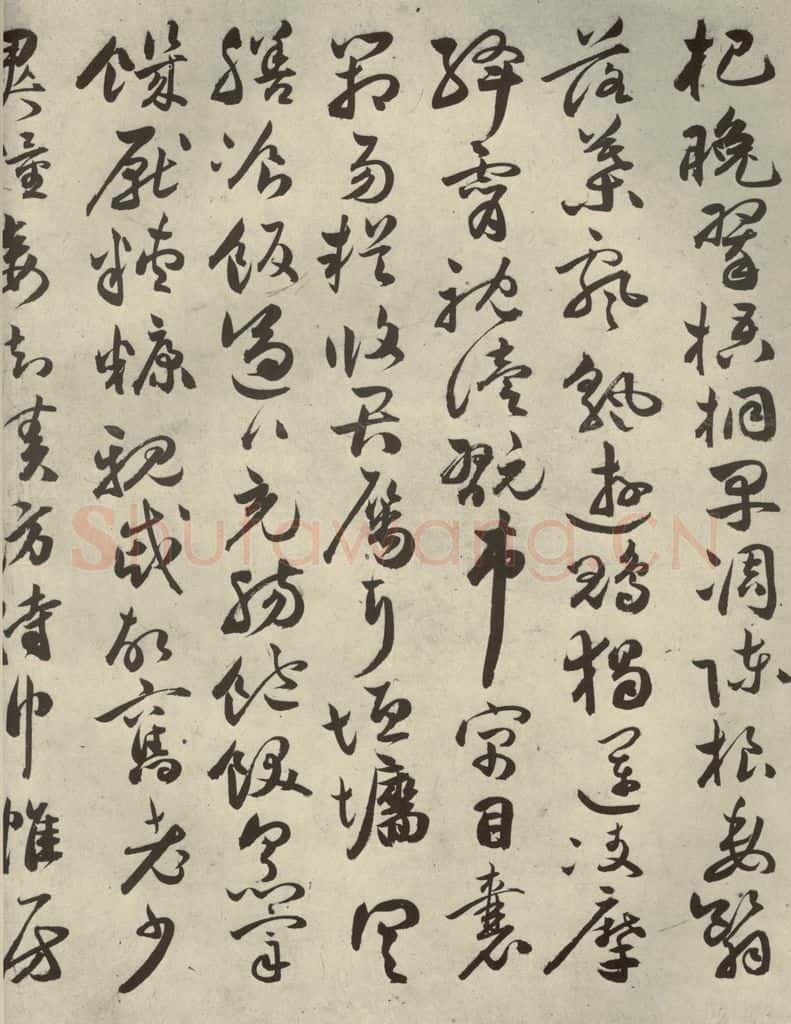 杷晚翠梧桐早凋陳根委翳
落葉飄颻遊鵾獨運凌摩
絳霄耽讀翫市寓目囊
箱易輶攸畏屬耳垣墉具
膳飡飯適口充腸飽飫烹宰
饑厭糟糠親戚故舊老少
異糧妾御績紡侍巾帷房
Shufawang.CN